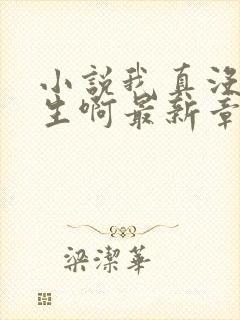 小説我真没
生啊最新章
梁潔華